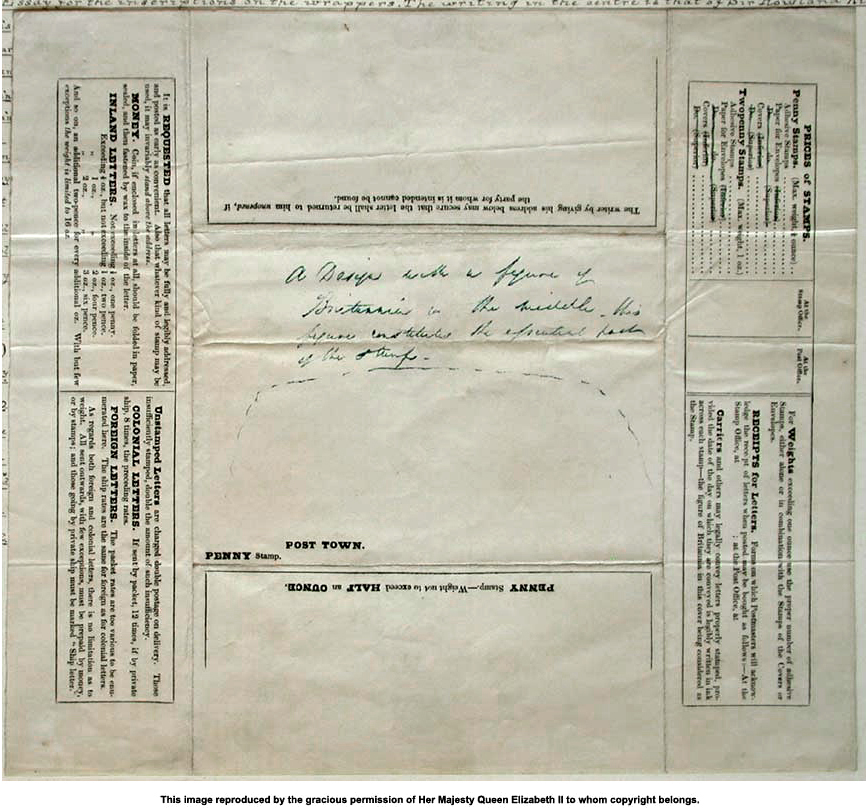 Essay for the inscriptions on the wrappers. The writing in the centre is that of Sir Rowland
It is REQUESTED that all letters may be fully and legibly addressed,
and posted as early as convenient. Also that wherever kind of stamp may be
used, it may invariably stand above the address.
MONEY. Coin, if enclosed in letters at all, should be folded in paper,
sealed, and then fastened by wax to the inside of the letter.
INLAND LETTERS. Not exceeding ½ oz., one penny.
Exceeding ½ oz., but not exceeding 1 oz., two pence.
" 1 oz., " 2 oz., four pence.
" 2 oz., " 3 oz., six pence.
And so on, an additional two-pence for every additional oz. With but few
exceptions the weight is limited to 16 oz.
Unstamped Letters are charged double postage on delivery. Those
insufficiently stamped, double the amount of such insufficiency.
COLONIAL LETTERS. If sent by packet, 12 times, if by private
ship, 8 times, the preceding rates.
FOREIGN LETTERS. The packet rates are too various to be enu-
merated here. The ship rates are the same for foreign as for colonial letters.
As regards both foreign and colonial letters, there is no limitation as to
weight. All sent outwards, with few exceptions, must be prepaid by money,
or by stamps; and those going by private ship must be marked "Ship letter."
The writer by giving his address below may secure that the letter shall be returned to him unopened, if
the party for whom it is intended cannot be found.
A Design with a figure of
Britannia in the middle. this
figure constitutes the essential part
of the stamp.
POST TOWN.
PENNY Stamp.
PENNY Stamp.—Weight not to exceed HALF an OUNCE.
PRICES of STAMPS.
At the Stamp Office.
At the Post Office.
Penny Stamps. (Max. weight ½ ounce)
Adhesive Stamps
Paper for Envelopes (Inferior)
Do. do. (Superior)
Covers (Inferior)
Do. (Superior)
Twopenny Stamps. (Max. weight 1 oz.)
Adhesive Stamps
Paper for Envelopes (Inferior)
Do. do. (Superior)
Covers (Inferior)
Do. (Superior)
For Weights exceeding one ounce use the proper number of adhesive
Stamps, either alone or in combination with the Stamps of the Covers or
Envelopes.
RECEIPTS for Letters. Forms on which Postmasters will acknow-
ledge the receipt of letters when posted may be bought as follows:—At the
Stamp Office, at ; at the Post Office, at
Carriers and others may legally convey letters properly stamped, pro-
vided the date of the day on which they are conveyed is legibly written in ink
across each stamp—the figure of Britannia in this cover being considered as
the Stamp.
This image reproduced by the gracious permission of Her Majesty Queen Elizabeth II to whom copyright belongs.